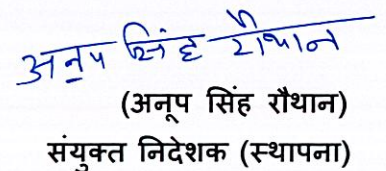 अनुप सिंह रौथान
(अनूप सिंह रौथान)
संयुक्त निदेशक (स्थापना)